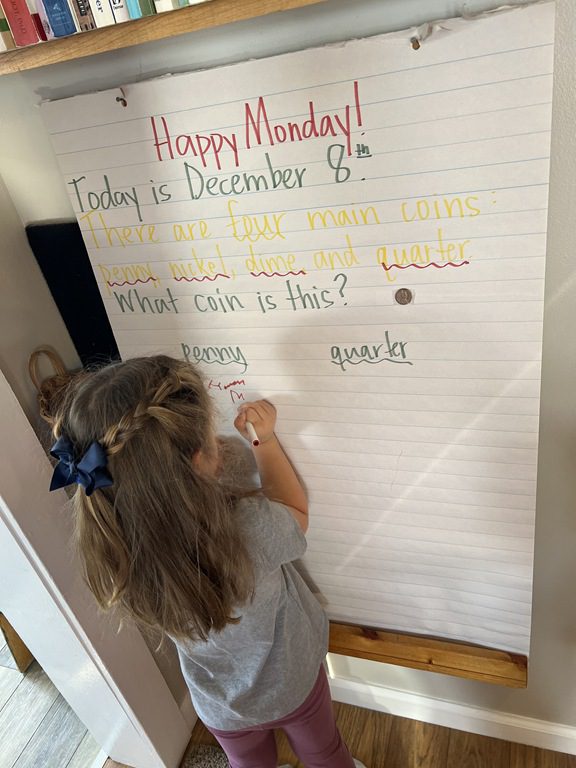 Happy Monday!
Today is December 8th.
There are four main coins:
penny, nickel, dime and quarter
What coin is this?
penny quarter